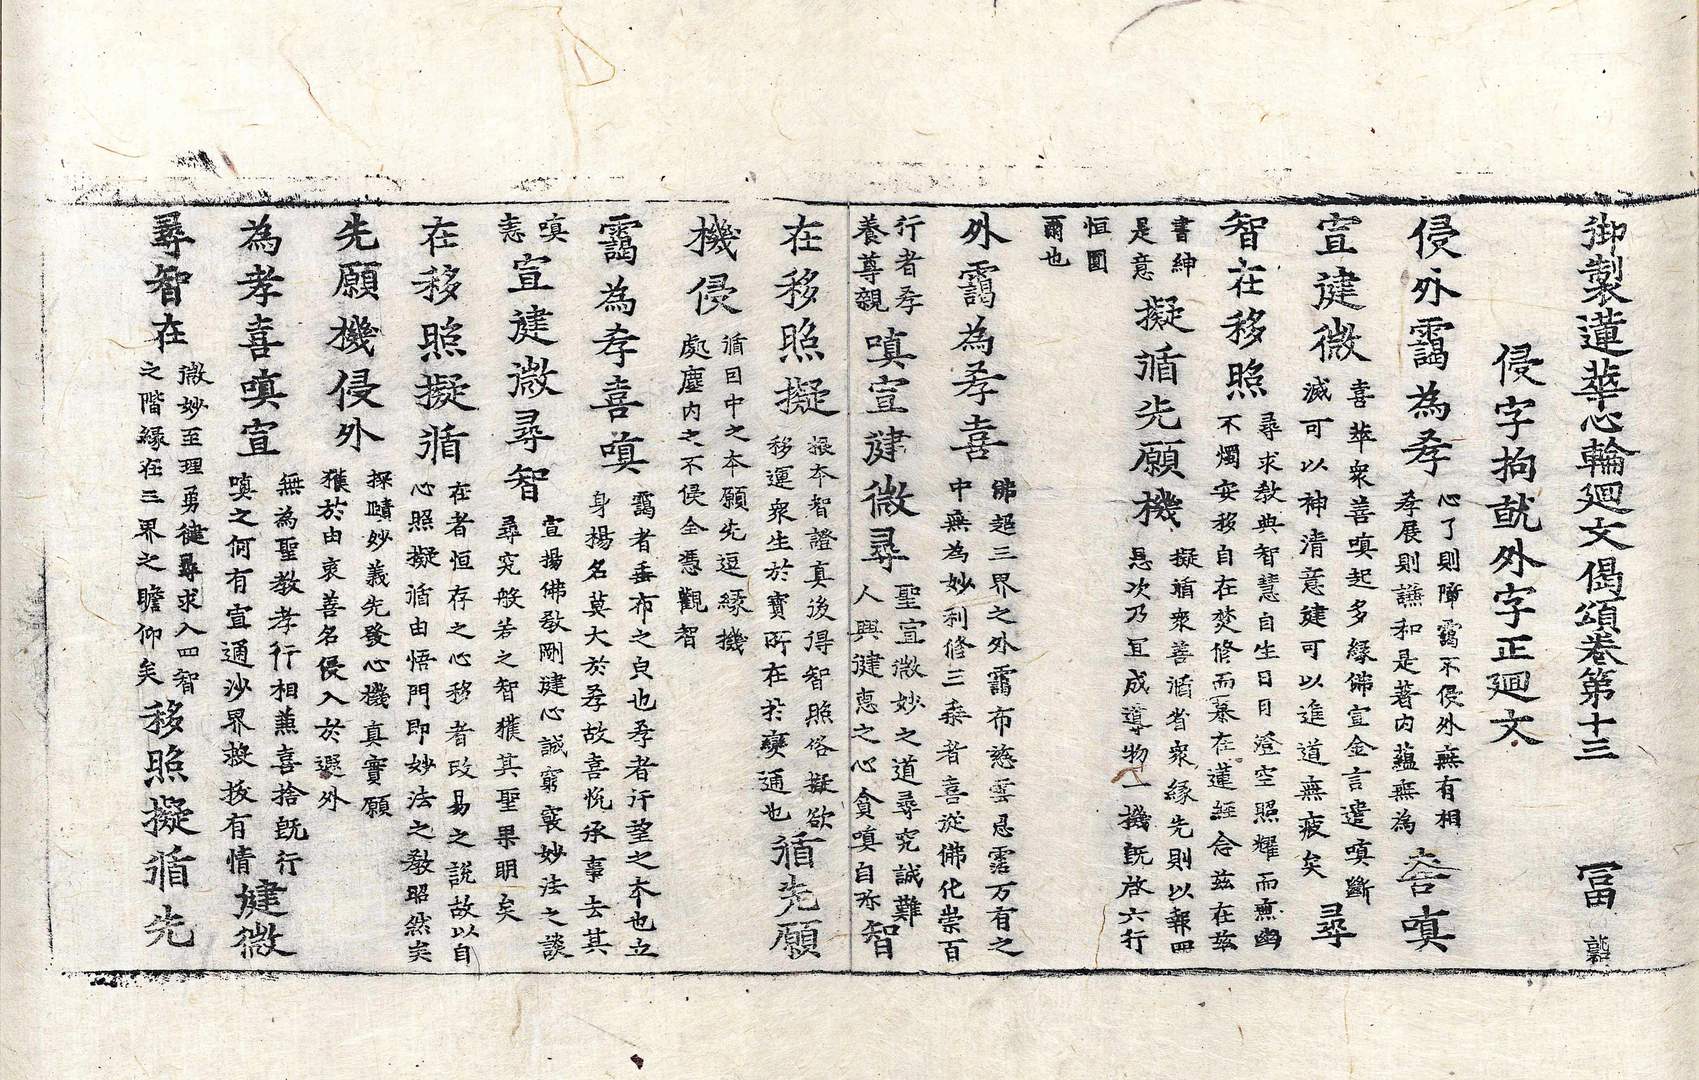 御製蓮華心輪廻文偈頌卷第十三　冨
侵字拘就外字正廻文
侵外靄為孝 心了則障靄不侵外無有相 孝展則讌和是著内蘊無為 喜嗔
宣健微 喜萃衆善嗔起多緣佛宣金言遣嗔斷 滅可以神清意建可以進道無疲矣 尋
智在移照 尋求敎典智慧自生日日澄空照耀而無幽 不燭安移自在焚修而募在蓮經念茲在茲
書紳 是意 擬循先願機 擬循衆善循省衆緣先則以報四 恩次乃冝成導物一機既啓六行
恒圓 爾也
外靄為孝喜 佛超三界之外靄布慈雲恩霑万有之 中無為妙利修三乘者喜從佛化崇百
行者孝 養尊親 嗔宣健微尋 聖宣微妙之道尋究誠難 人興健惠之心貪嗔自弥 智
在移照擬 振本智證真後得智照俗擬欲 移運衆生於寶所在於變通也 循先願
機侵 循曰中之本願先逗緣機 處塵内之不侵全憑觀智
靄為孝喜嗔 靄者垂布之皃也孝者行望之本也立 身揚名莫大於孝故喜悅承事去其
嗔 恚 宣健微尋智 宣揚佛敎剛健心誠窮衺妙法之談 尋究般若之智獲其聖果明矣
在移照擬循 在者恒存之心移者改易之說故以自 心照擬循由悟門即妙法之敎昭然矣
先願機侵外 探賾妙義先發心機真實願 獲於由衷善名侵入於遐外
為孝喜嗔宣 無為聖敎孝行相兼喜捨既行 嗔之何有宣通沙界救拔有情 健微
尋智在 微妙至理勇健尋求入四智 之階緣在三界之瞻仰矣 移照擬循先